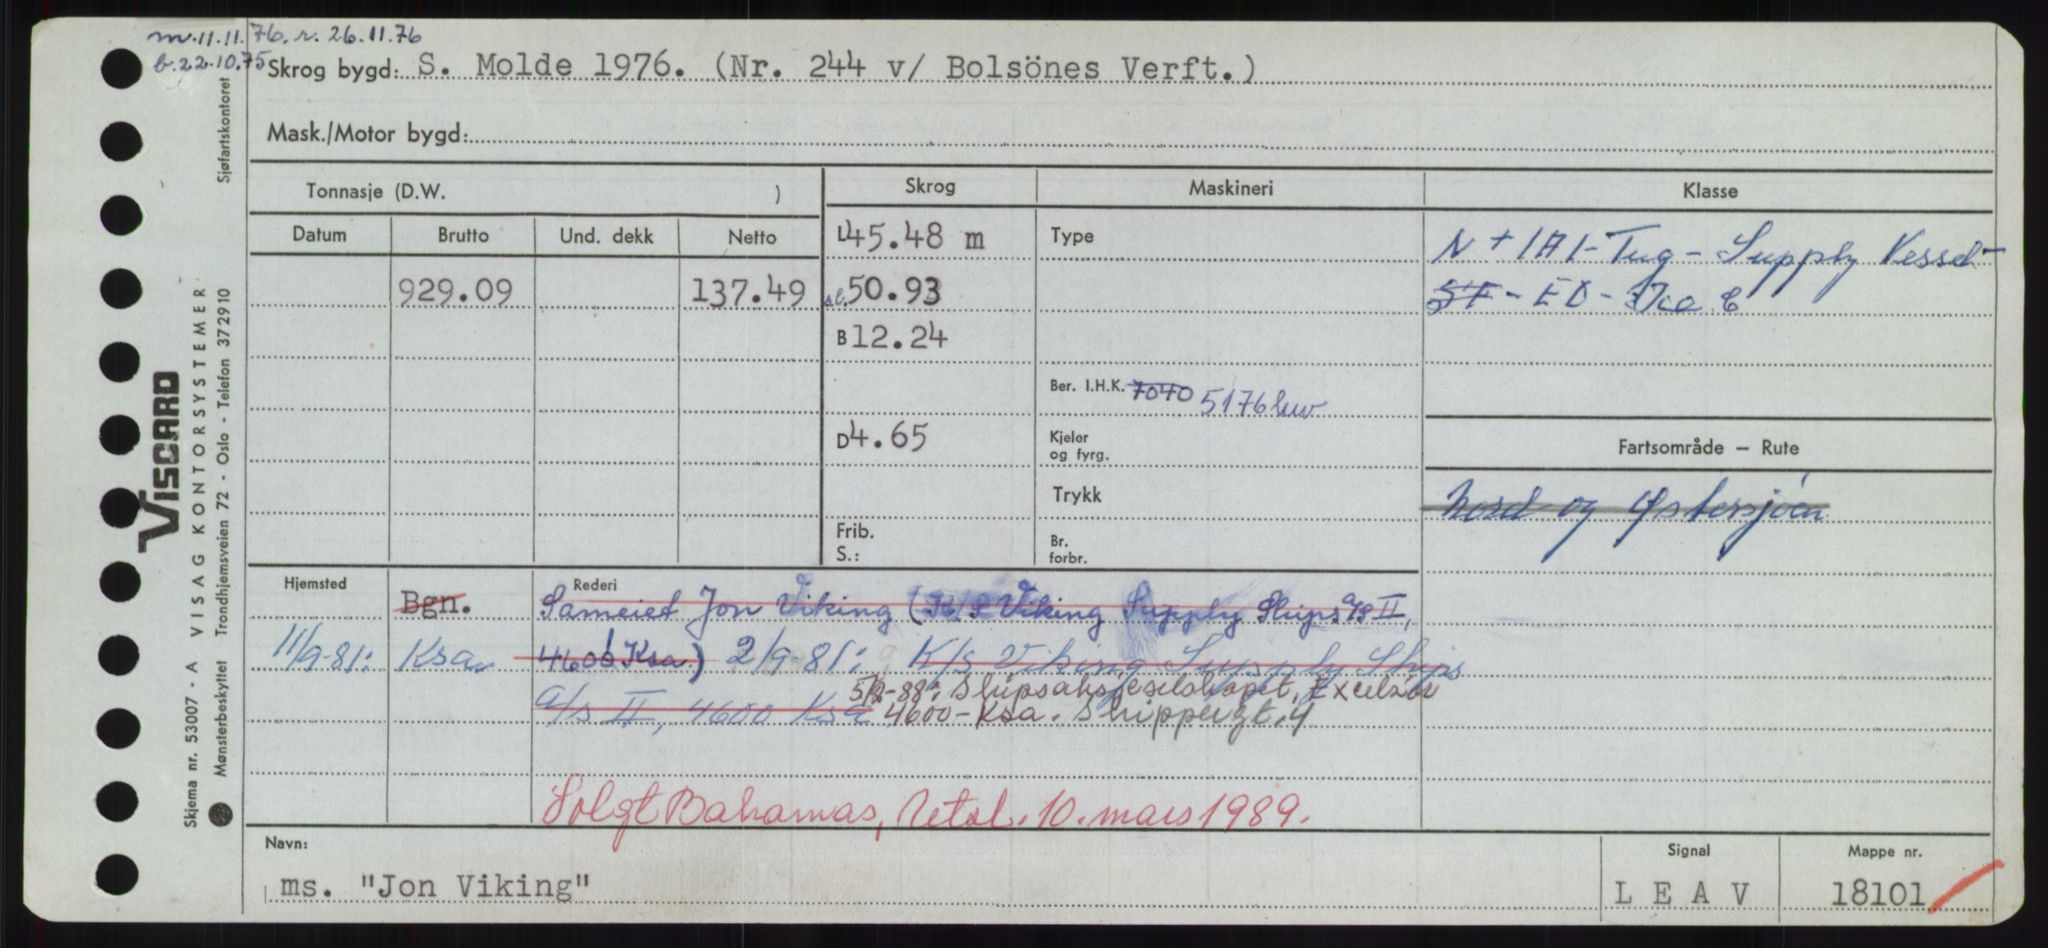 m. 11.11.76. r. 26.11.76
b. 22.10.75
Skrog bygd: S. Molde 1976. (Nr. 244 v/ Bolsönes Verft.)
Mask./Motor bygd:
Tonnasje (D.W. )
Skrog
Maskineri
Klasse
Datum
Brutto
Und. dekk
Netto
L 45.48 m
Type
N + 1A1-Tug-Supply Vessel-
929.09
137.49
s.l. 50.93
SF - EO - Ice C
B 12.24
Ber. I.H.K. 7040 5176 kw
D 4.65
Kjeler
og fyrg.
Fartsområde — Rute
Trykk
Nord og Østersjøen
Frib.
S.:
Br.
forbr.
Hjemsted
Bgn.
Rederi
Sameiet Jon Viking (K/S Viking Supply Ships a/s II,
11/9-81: Ksa.
4600 Ksa.) 2/9 81: K/S Viking Supply Ships
a/s II, 4600 Ksa
5/2-88: Skipsaksjeselskapet Excelsior
4600-Ksa. Skippergt. 4
Solgt Bahamas, Netsl. 10. mars 1989.
Navn:
ms. "Jon Viking"
Signal
L E A V
Mappe nr.
18101
Sjøfartskontoret
VISCARD
Skjema nr. 53007 - A VISAG KONTORSYSTEMER
Mønsterbeskyttet Trondhjemsveien 72 - Oslo - Telefon 372910